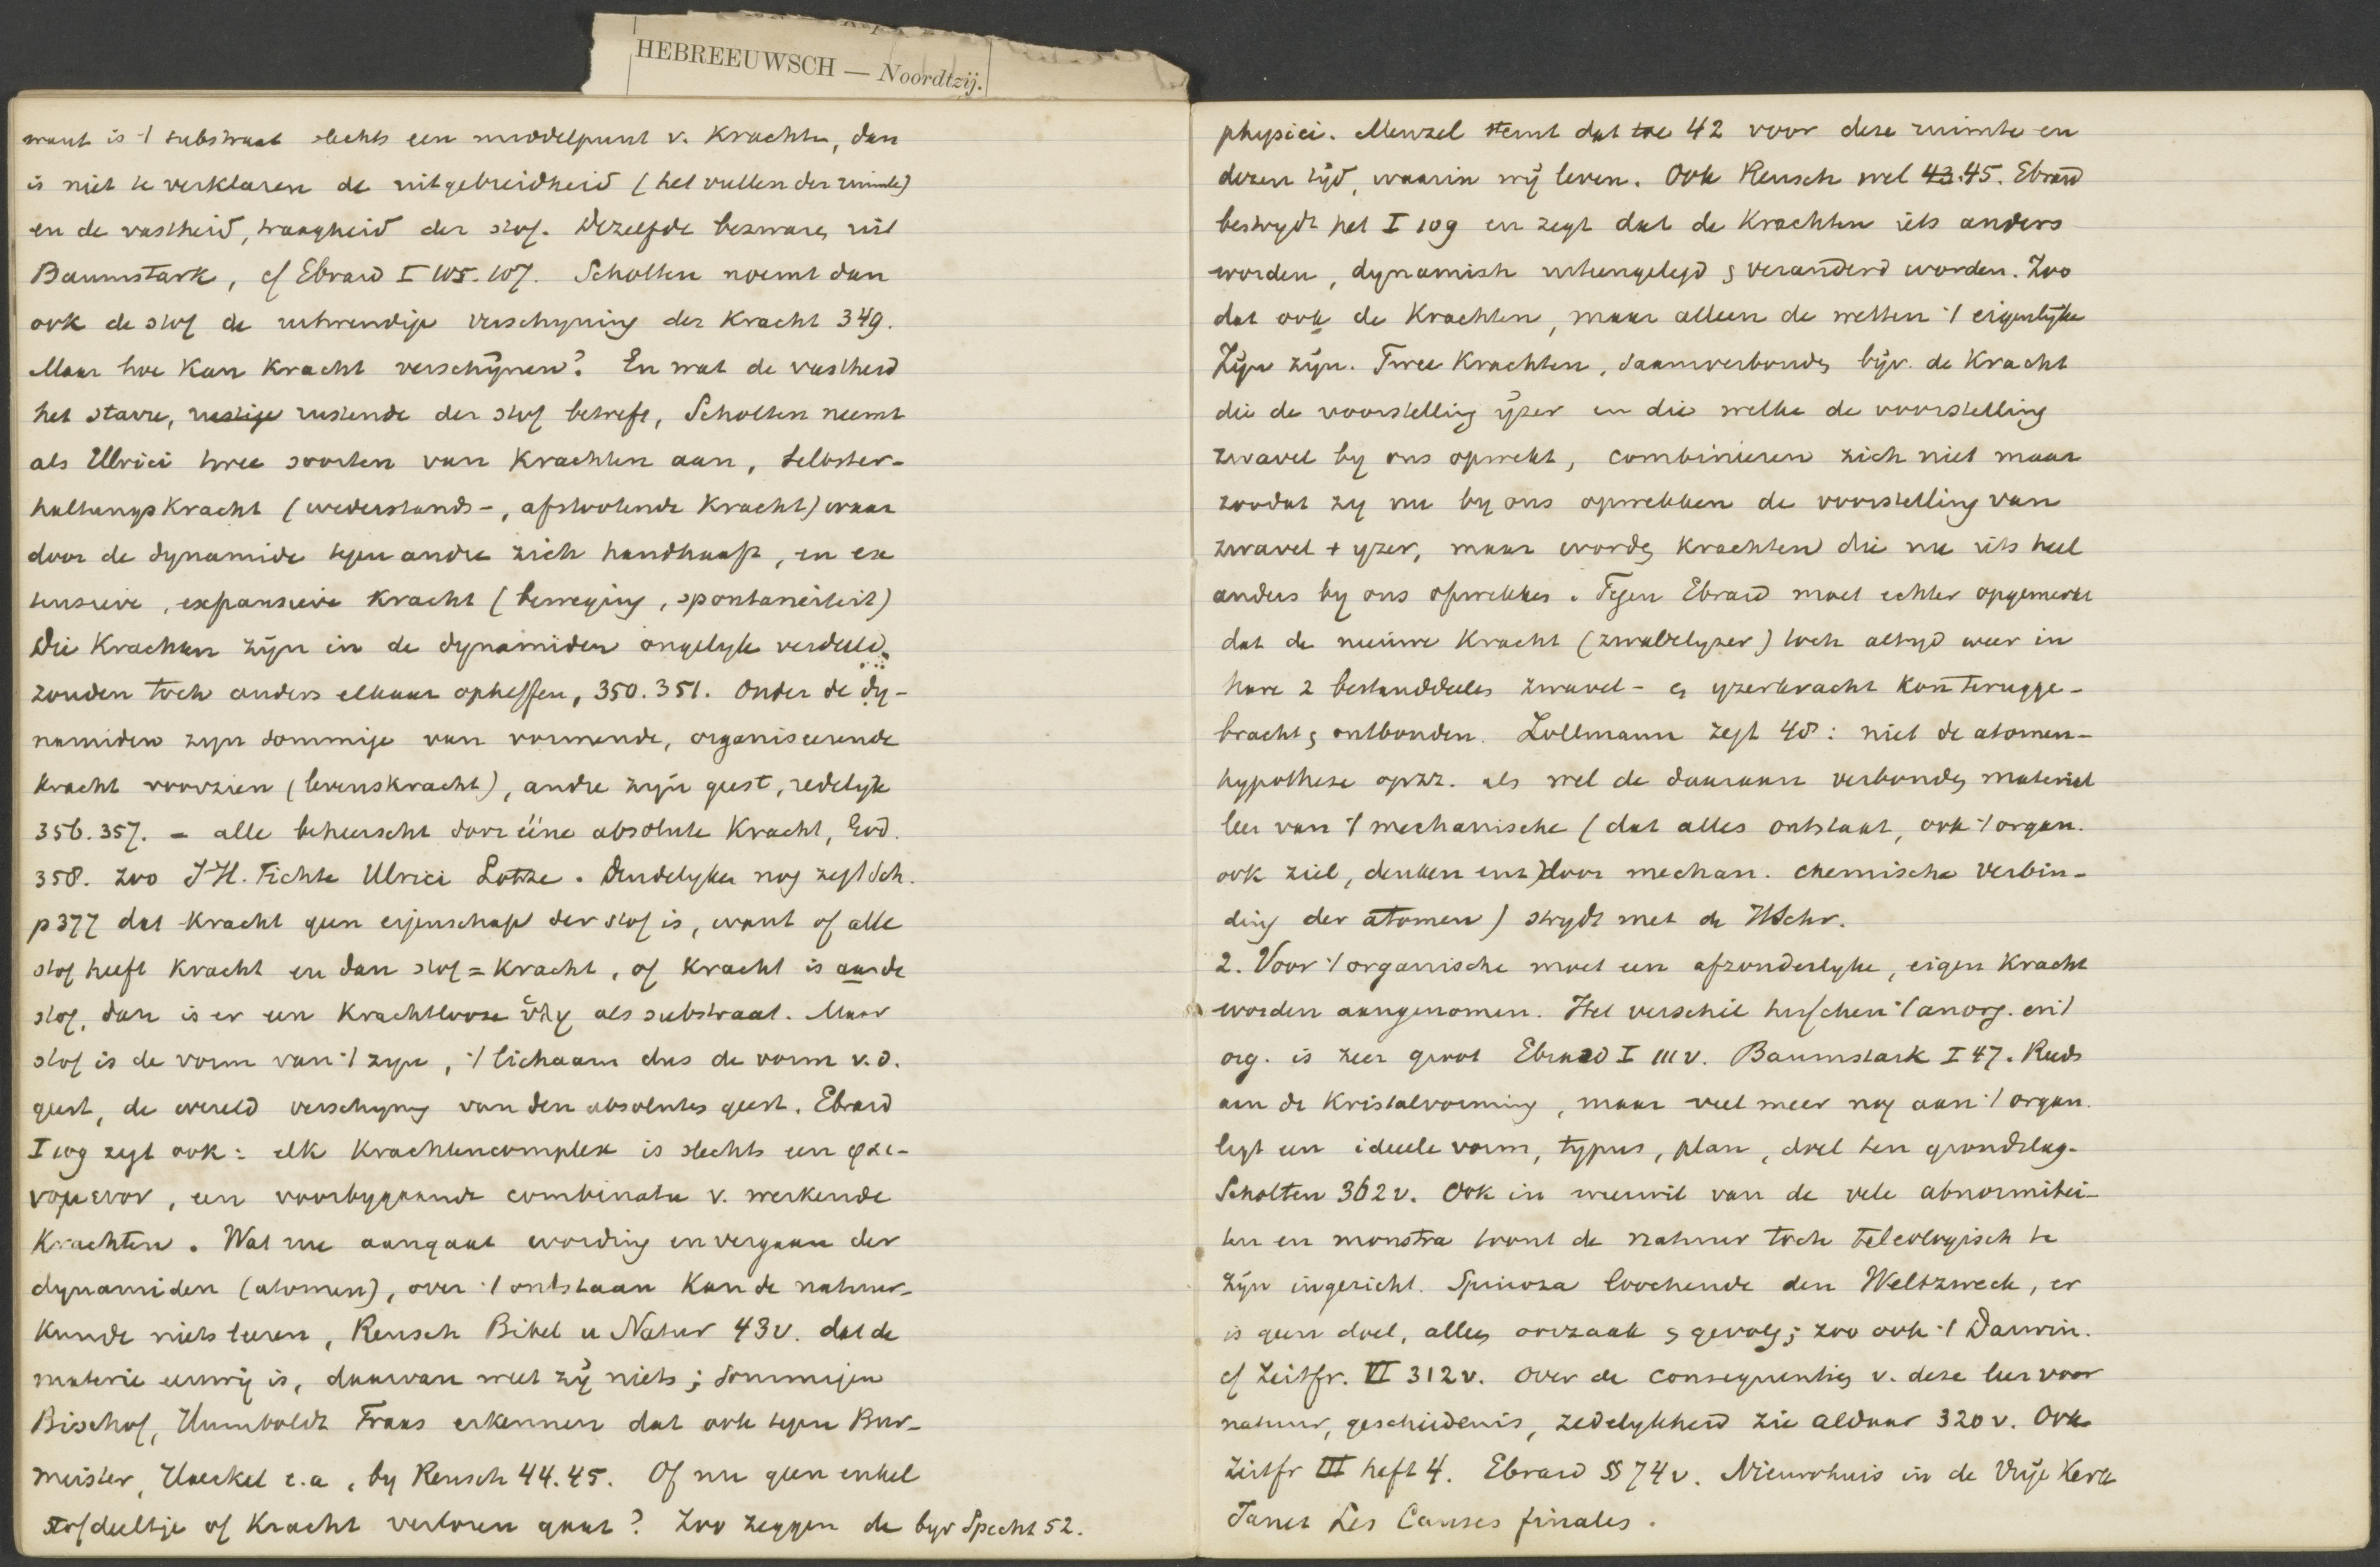 HEBREEUWSCH — Noordtzij.
want is 't substraat slechts een middelpunt v. Krachten, dan
is niet te verklaren de uitgebreidheid (het vullen der ruimte)
en de vastheid, traagheid der stof. Dezelfde bezwaren uit
Baumstark, cf Ebrard I 105. 107. Scholten noemt dan
ook de stof de uitwendige verschyning der Kracht 349.
Maar hoe kan Kracht verschijnen? En wat de vastheid
het starre, rustige rustende der stof betreft, Scholten neemt
als Ulrici twee soorten van Krachten aan, selbster-
haltungsKracht (wederstands-, afstootende Kracht) waar
door de dynamide tegen andre zich handhaaft, en ex
tensieve, expansieve Kracht (beweging, spontaneiteit)
Die Krachten zijn in de dynamiden ongelyk verdeeld,
zouden toch anders elkaar opheffen, 350. 351. Onder de dy-
namiden zyn sommige van vormende, organiseerende
kracht voorzien (levenskracht), andre zijn geest, redelyk
356. 357. – alle beheerscht door ééne absolute Kracht, God.
358. Zoo J H. Fichte Ulrici Lotze. Duidelyker nog zegt Sch.
p 377 dat Kracht geen eigenschap der stof is, want of alle
stof heeft Kracht en dan stof = Kracht, of Kracht is aan de
stof, dan is er een Krachtlooze ὕλη als substraat. Maar
stof is de vorm van 't zyn, 't lichaam dus de vorm v. d.
geest, de wereld verschyning van den absoluten geest. Ebrard
I 109 zegt ook: elk Krachtencomplex is slechts een φαι-
νομενον, een voorbygaande combinatie v. werkende
Krachten. Wat nu aangaat wording en vergaan der
dynamiden (atomen), over 't ontstaan Kan de natuur-
Kunde niets leeren, Reusch Bibel u Natur 43 v. dat de
materie eeuwig is, daarvan weet zij niets; sommigen
Bischof, Humboldt Fraas erkennen dat ook tegen Bur-
meister, Haeckel e.a. by Reusch 44. 45. Of nu geen enkel
stofdeeltje of Kracht verloren gaat? Zoo zeggen de byv Specht 52.
physici. Menzel stemt dat toe 42 voor deze ruimte en
dezen tijd, waarin wij leven. Ook Reusch wel 43. 45. Ebrard
bestrydt het I 109 en zegt dat de Krachten iets anders
worden, dynamisch uiteengelegd en veranderd worden. Zoo
dat ook de Krachten, maar alleen de wetten 't eigenlijke
Zijn zijn. Twee Krachten, saamverbonden, bijv. de Kracht
die de voorstelling ijzer en die welke de voorstelling
zwavel by ons opwekt, combinieren zich niet maar
zoodat zy nu by ons opwekken de voorstelling van
zwavel + yzer, maar worden Krachten die nu iets heel
anders by ons opwekken. Tegen Ebrard moet echter opgemerkt
dat de nieuwe Kracht (zwavelyzer) toch altyd weer in
hare 2 bestanddeelen zwavel- en yzerkracht kan terugge-
bracht en ontbonden. Zollmann zegt 48: niet de atomen-
hypothese opzz. als wel de daaraan verbonden materiel
leer van 't mechanische (dat alles ontstaat, ook 't organ.
ook ziel, denken enz) door mechan. chemische verbin-
ding der atomen) strydt met de HSchr.
2. Voor 't organische moet een afzonderlyke, eigen Kracht
worden aangenomen. Het verschil tusschen 't anorg. en 't
org. is zeer groot Ebrard I 111 v. Baumstark I 47. Reeds
aan de Kristalvorming, maar veel meer nog aan 't organ.
ligt een ideele vorm, typus, plan, doel ten grondslag.
Scholten 362 v. Ook in weerwil van de vele abnormitei-
ten en monstra toont de natuur toch teleologisch te
zijn ingericht. Spinoza loochende den Weltzweck, er
is geen doel, alles oorzaak en gevolg; zoo ook 't Darwin.
cf Zeitfr. VI 312 v. Over de consequenties v. deze leer voor
natuur, geschiedenis, zedelykheid zie aldaar 320 v. Ook
Zeitfr III heft 4. Ebrard §§ 74 v. Nieuwhuis in de Vrije Kerk
Janet Les Causes finales.